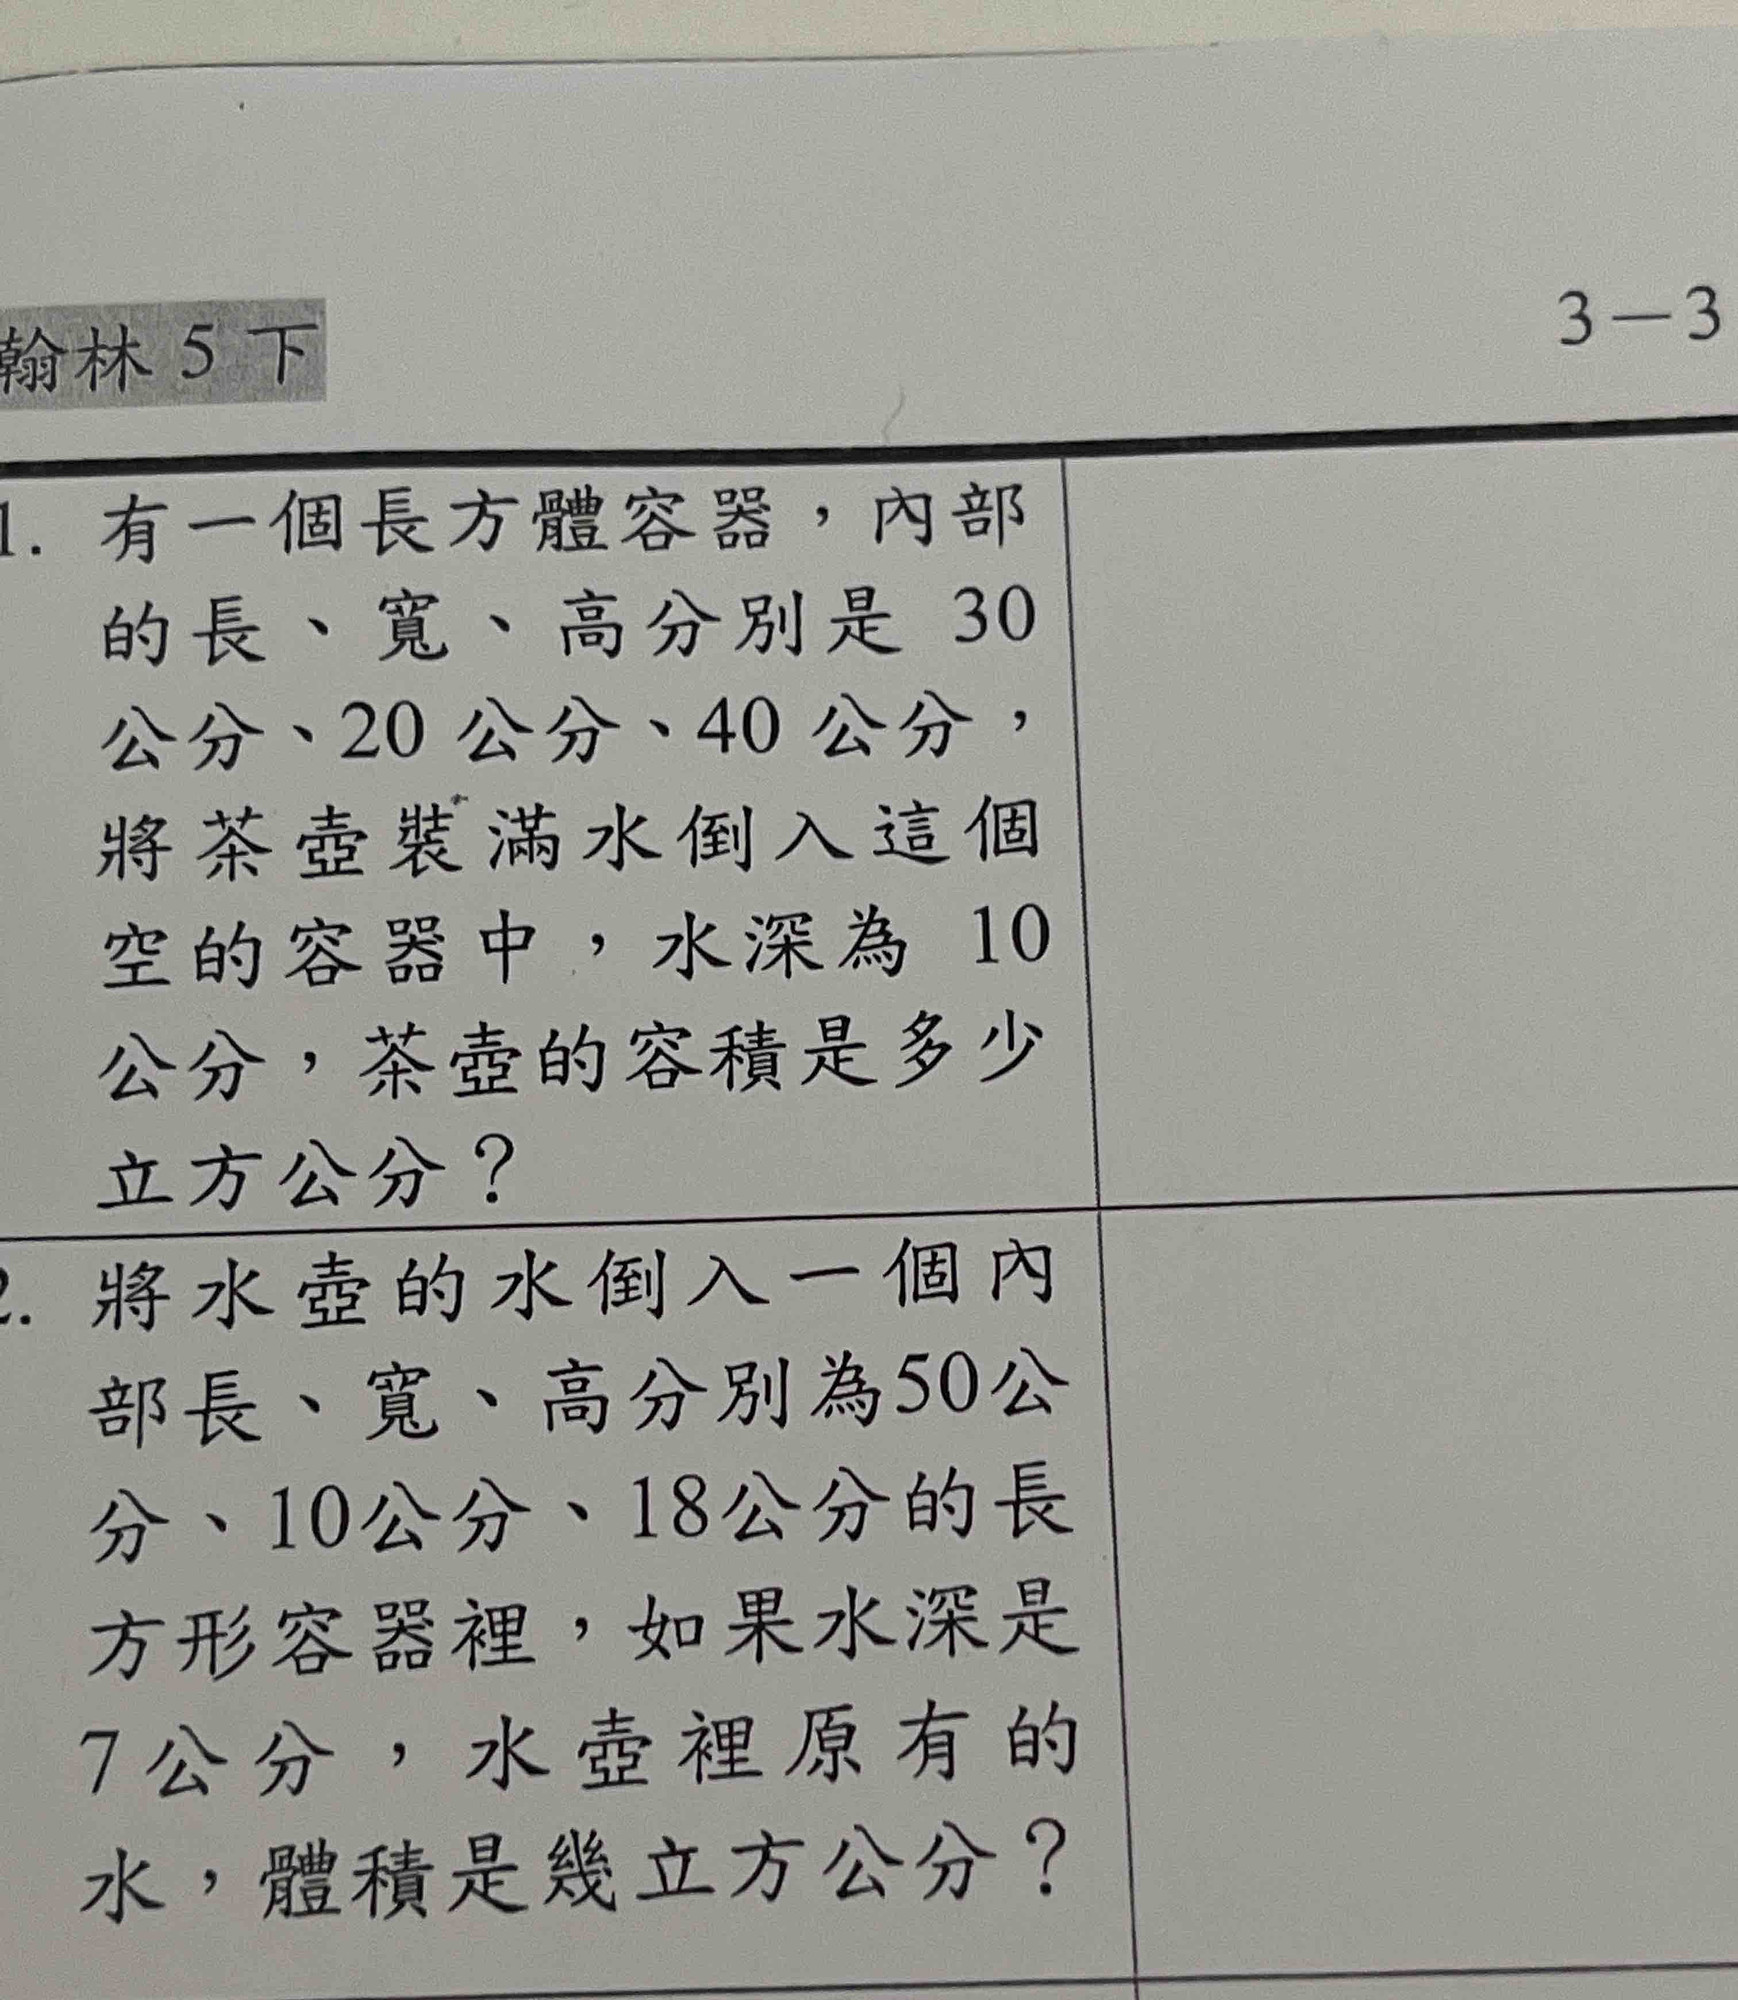 翰林5下
3－3
1. 有一個長方體容器，內部
的長、寬、高分別是 30
公分、20 公分、40 公分，
將茶壺裝滿水倒入這個
空的容器中，水深為 10
公分，茶壺的容積是多少
立方公分？
2. 將水壺的水倒入一個內
部長、寬、高分別為50公
分、10公分、18公分的長
方形容器裡，如果水深是
7公分，水壺裡原有的
水，體積是幾立方公分？